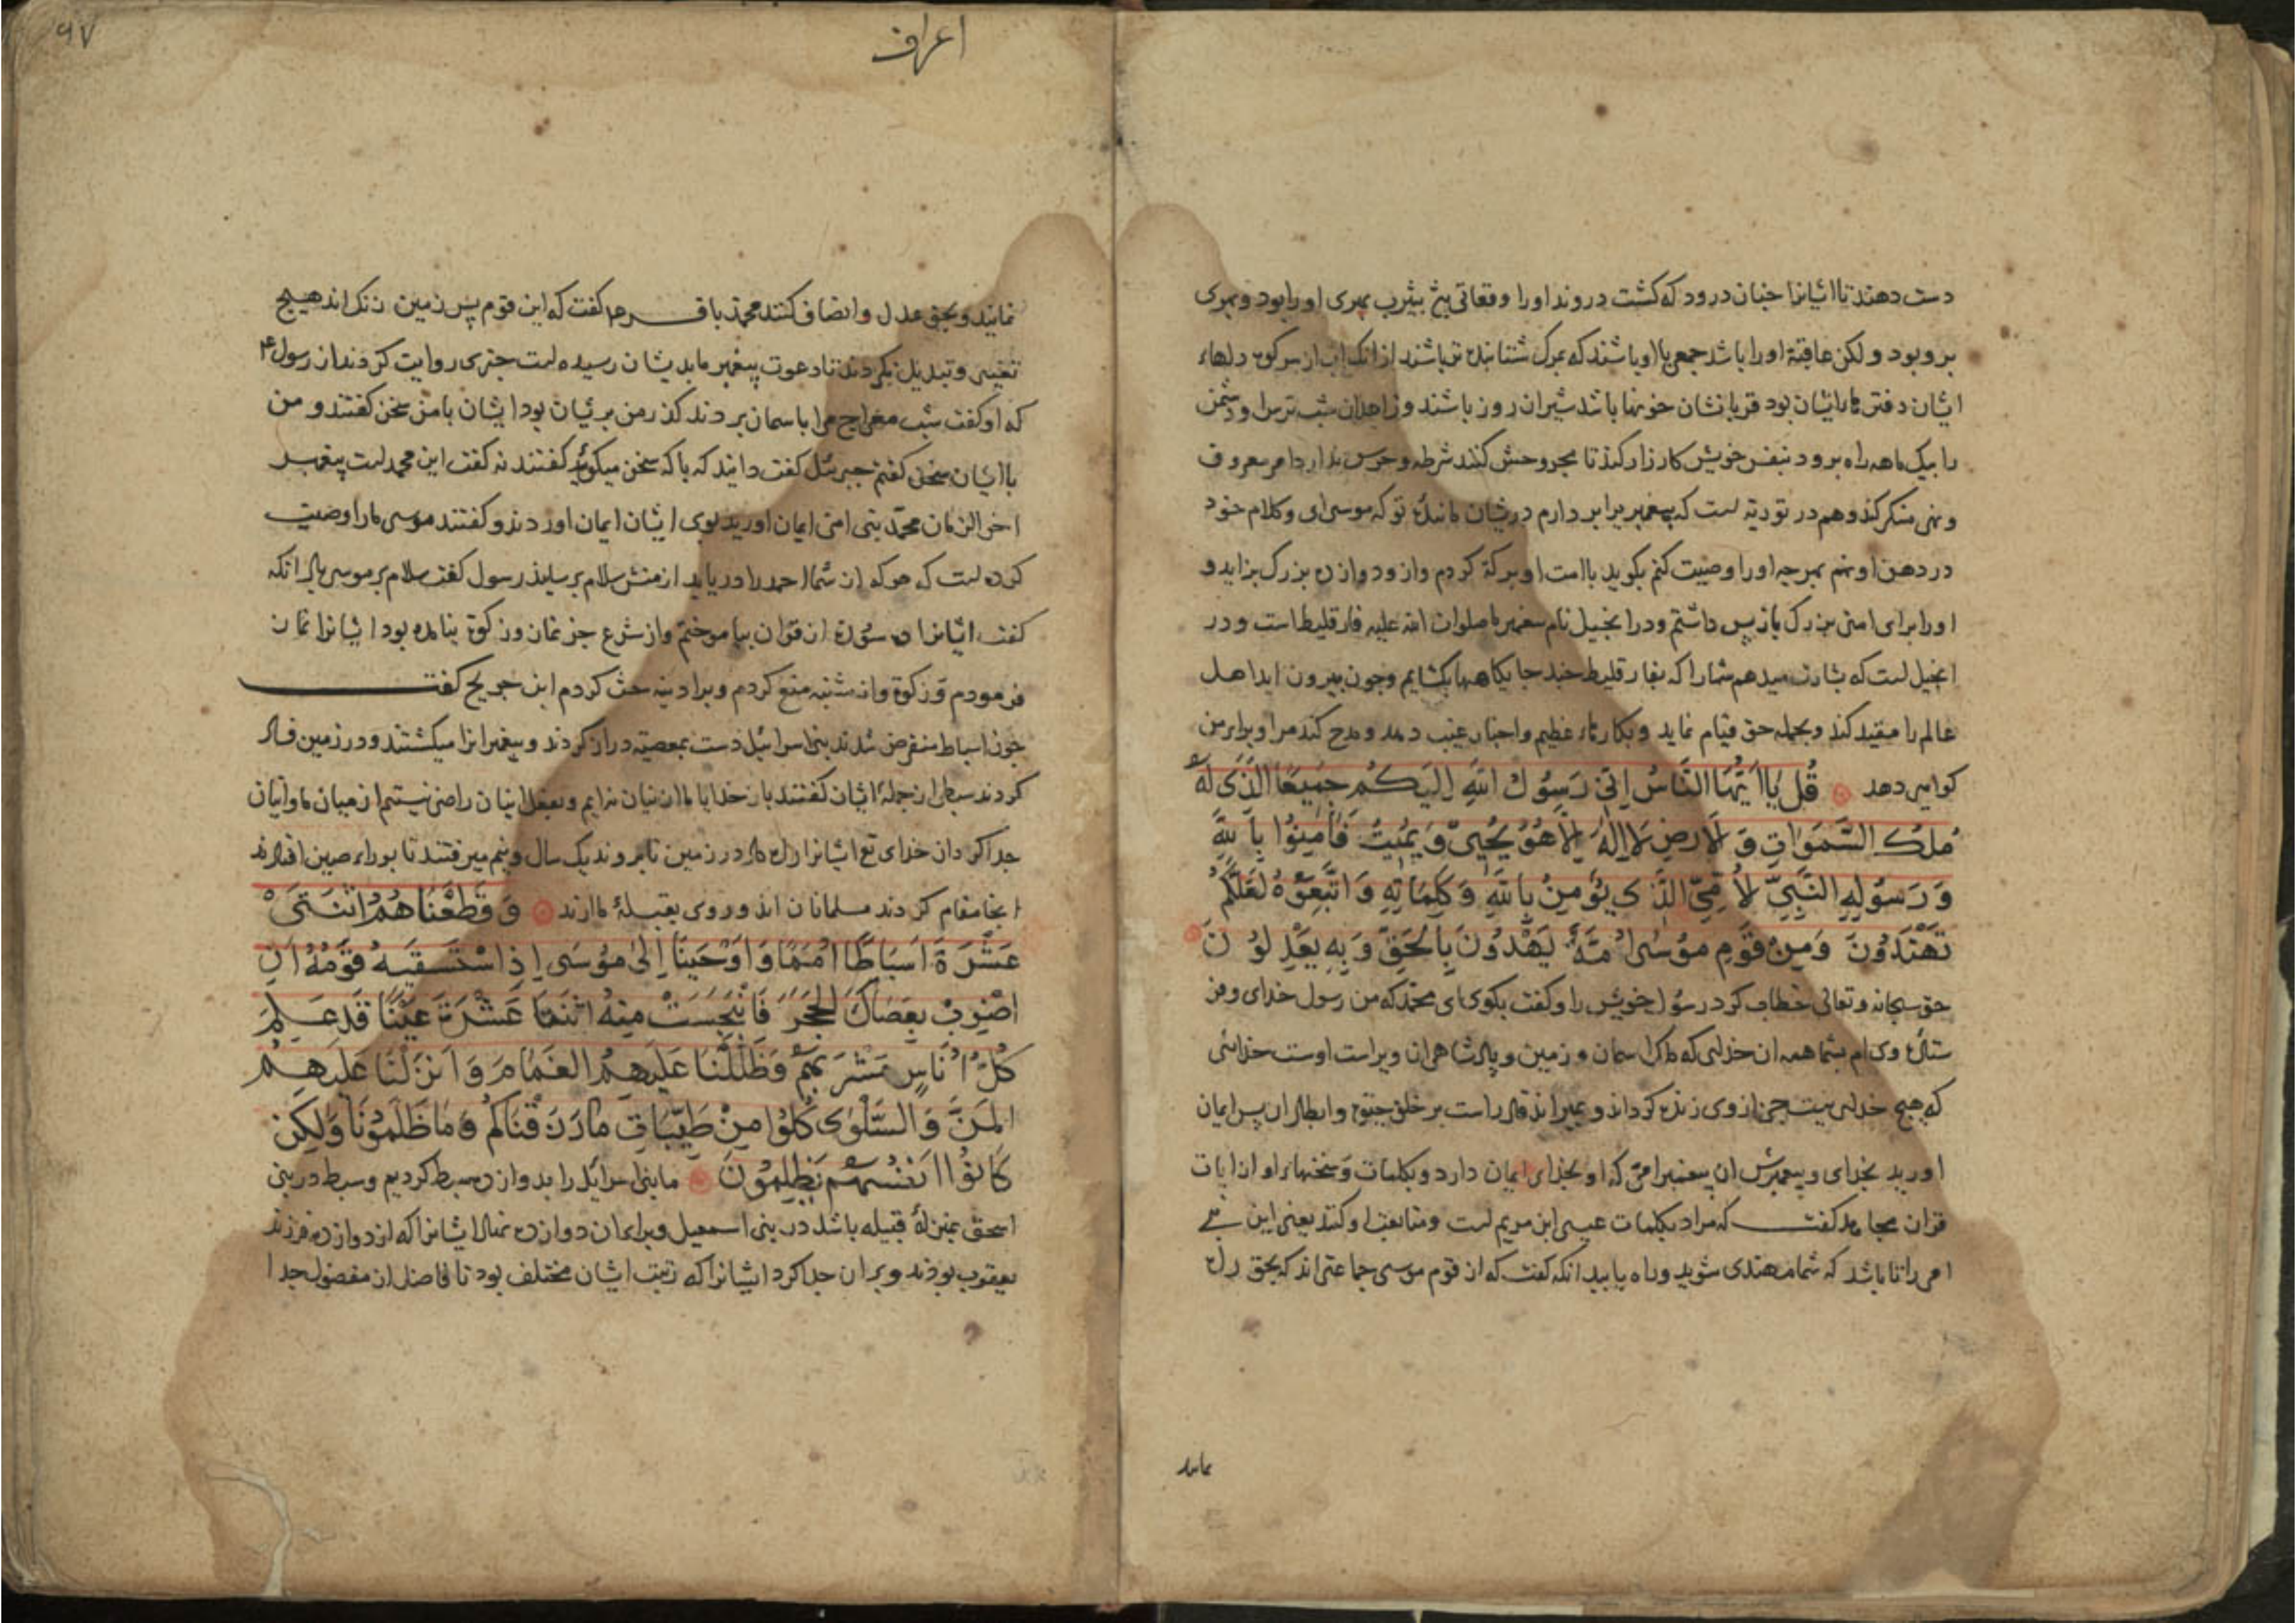 دست دهند تا ایشانرا چنان درود که کشت دروند اورا وقعاتی پنج بیثرب بمری اورا بود و بمری
برو بود ولکن عاقبة اورا باشد جمعی با او باشند که بمرک شتابنده تر باشند از انک اب از سر کوه دلهاء
ایشان دفتر ایشان بود قربانشان خونها باشد شیران روز باشند و زاهدان شب ترس او دشمن
را بیک ماهه راه برود بنفس خویش کارزار کند تا مجروحش کنند شرطه و حرس ندارد امر معروف
و نهی منکر کند و هم در توریة است که پیغمبر برابر دارم درشان مانند تو که موسی ای و کلام خود
در دهن او نهم بهرچه اورا وصیت کنم بکوید با امت او برکة کردم و ازو دوازده بزرک بزاید و
اورا برای امتی بزرک بازپس داشتم و در انجیل نام پیغمبر ما صلوات الله علیه فارقلیط است و در
انجیل است که بشارت میدهم شمارا که بفارقلیط جایکاهها بکشایم و چون بیرون اید اهل
عالم را مقید کند و بجمله حق قیام نماید و بکارهاء عظیم و اخبار غیب دهد و مدح کند مرا و برای من
کواهی دهد قُل یَا اَیُّهَا النَّاسُ اِنّی رَسُولُ اللهِ اِلَیکُم جَمِیعًا الَّذی لَهُ
مُلکُ السَّمَوَاتِ وَ الاَرضِ لَا اِلٰهَ اِلَّا هُوَ یُحیی وَ یُمِیتُ فَاٰمِنُوا بِاللهِ
وَ رَسُولِهِ النَّبِیِّ الاُمِّیِّ الَّذی یُؤمِنُ بِاللهِ وَ کَلِمَاتِهِ وَ اتَّبِعُوهُ لَعَلَّکُم
تَهتَدُونَ وَمِن قَومِ مُوسٰی اُمَّةٌ یَهدُونَ بِالحَقِّ وَ بِهِ یَعدِلُونَ
حق سبحانه و تعالی خطاب کرد رسول خویش را و کفت بکوی ای محمد که من رسول خدای و فر
ستاده وی ام بشما همه ان خدایی که ملک اسمان و زمین و پادشاهی ان ویراست اوست خدائی
که هیچ خدایی نیست جز از وی زنده کرداند و بمیراند قادر است بر خلق حیوة و ابطال ان پس ایمان
اورید بخدای و پیغمبرش ان پیغمبر امی که او بخدای ایمان دارد و بکلمات و سخنهاء او از ایات
قران مجاهد کفت که مراد بکلمات عیسی ابن مریم است و متابعت او کنند یعنی این نبی
امی را تا باشد که شما مهتدی شوید و راه یابید انکه کفت که از قوم موسی جماعتی اند که بحق راه
نمایند
اعراف
۹۷
نمایند و بحق عدل و انصاف کنند محمد باقر ع م کفت که این قوم پس زمین زنک اند هیچ
تغییر و تبدیل نکردند تا دعوت پیغمبر ما بدیشان رسیده است خبری روایت کردند از رسول ع م
که او کفت شب معراج مرا باسمان بردند کذر من بریشان بود ایشان با من سخن کفتند و من
با ایشان سخن کفتم جبرئیل کفت دانید که با که سخن میکوئید کفتند نه کفت این محمد است پیغمبر
اخر الزمان محمد نبی امی ایمان اورید بوی ایشان ایمان اوردند و کفتند موسی مارا وصیت
کرده است که هرکه از شما احمد را دریابد از منش سلام برسانید رسول کفت سلام بر موسی باد انکه
کفت ایشانرا ده سورة از قران بیاموختم و از شرع جز نماز و زکوة نیامده بود ایشانرا نماز
فرمودم و زکوة و از شنبه منع کردم و براد ینه حث کردم ابن جریج کفت
چون اسباط منقرض شدند بنی اسرائیل دست بمعصیة دراز کردند و پیغمبرانرا میکشتند و در زمین فساد
کردند سبطی از جمله ایشان کفتند بار خدایا ما از اینان نه ایم و بفعل اینان راضی نیستیم از میان ما و اینان
جدا کردان خدای تع ایشانرا راه داد در زمین تا برفتند یک سال و نیم میرفتند تا بوراء صین افتادند
انجا مقام کردند مسلمانان اند و روی بقبله ما ارند وَ قَطَّعنَاهُمُ اثنَتَی
عَشرَةَ اَسبَاطًا اُمَمًا وَ اَوحَینَا اِلٰی مُوسَی اِذِ استَسقٰیهُ قَومُهُ اَنِ
اضرِب بِعَصَاکَ الحَجَرَ فَانبَجَسَت مِنهُ اثنَتَا عَشرَةَ عَینًا قَد عَلِمَ
کُلُّ اُنَاسٍ مَشرَبَهُم وَ ظَلَّلنَا عَلَیهِمُ الغَمَامَ وَ اَنزَلنَا عَلَیهِمُ
المَنَّ وَ السَّلوٰی کُلُوا مِن طَیِّبَاتِ مَا رَزَقنَاکُم وَ مَا ظَلَمُونَا وَلٰکِن
کَانُوا اَنفُسَهُم یَظلِمُونَ ما بنی اسرائیل را بدوازده سبط کردیم و سبط در بنی
اسحق بمنزلة قبیله باشد در بنی اسمعیل و برای ان دوازده نهاد ایشانرا که از دوازده فرزند
یعقوب بودند و بر ان جدا کرد ایشانرا که رتبت ایشان مختلف بود تا فاضل از مفضول جدا